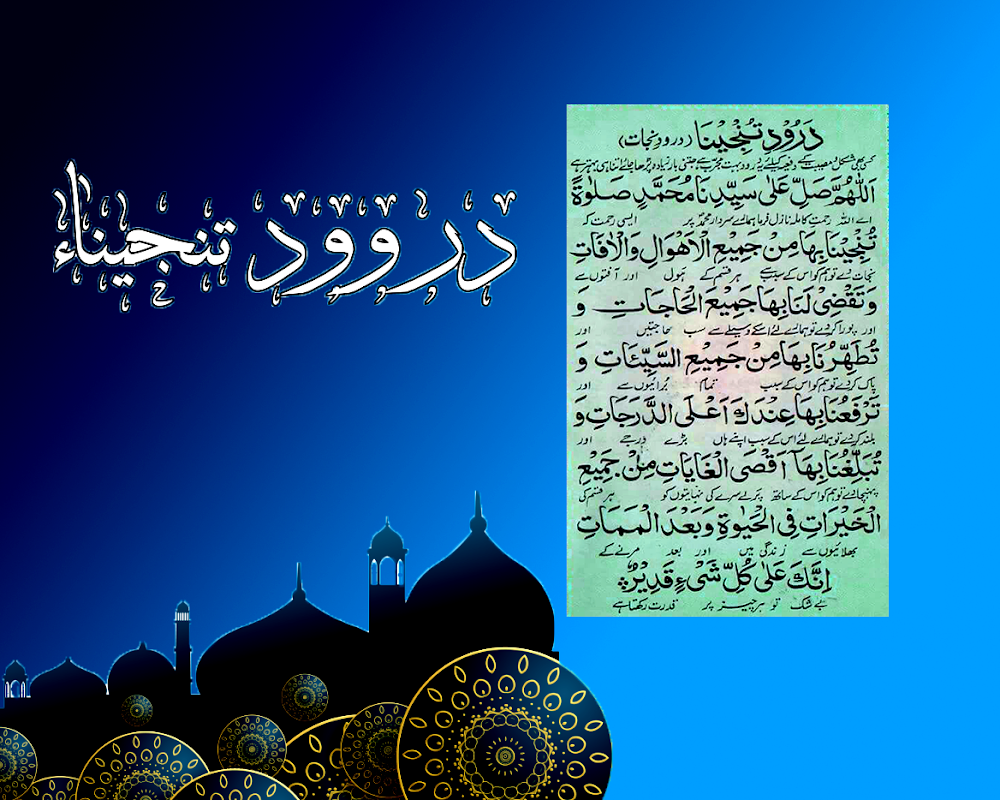 دروود تنجیناء
دَرُوْدِ تُنْجِيْنَا (درودِ نجات)
اَللّٰهُمَّ صَلِّ عَلٰى سَيِّدِنَا مُحَمَّدٍ صَلٰوةً
اے اللہ رحمت کاملہ نازل فرما ہمارے سردار محمدؐ پر ایسی رحمت کہ
تُنْجِيْنَا بِهَا مِنْ جَمِيْعِ الْاَهْوَالِ وَالْاٰفَاتِ
نجات دے تو ہم کو اس کے سبب سے ہر قسم کے ہول اور آفتوں سے
وَ تَقْضِىْ لَنَا بِهَا جَمِيْعَ الْحَاجَاتِ وَ
اور پورا کردے تو ہمارے لئے اسکے وسیلے سے سب حاجتیں اور
تُطَهِّرُنَا بِهَا مِنْ جَمِيْعِ السَّيِّئَاتِ وَ
پاک کردے تو ہم کو اس کے سبب تمام بُرائیوں سے اور
تَرْفَعُنَا بِهَا عِنْدَكَ اَعْلَى الدَّرَجَاتِ وَ
بلند کردے تو ہمارے لئے اس کے سبب اپنے ہاں بڑے درجے اور
تُبَلِّغُنَا بِهَآ اَقْصَى الْغَايَاتِ مِنْ جَمِيْعِ
پہنچادے تو ہم کو اس کے ساتھ پرلے سرے کی نہایتوں کو ہر قسم کی
الْخَيْرَاتِ فِى الْحَيٰوةِ وَبَعْدَ الْمَمَاتِ
بھلائیوں سے زندگی میں اور بعد مرنے کے
اِنَّكَ عَلٰى كُلِّ شَىْءٍ قَدِيْرٌ
بے شک تو ہر چیز پر قدرت رکھتا ہے